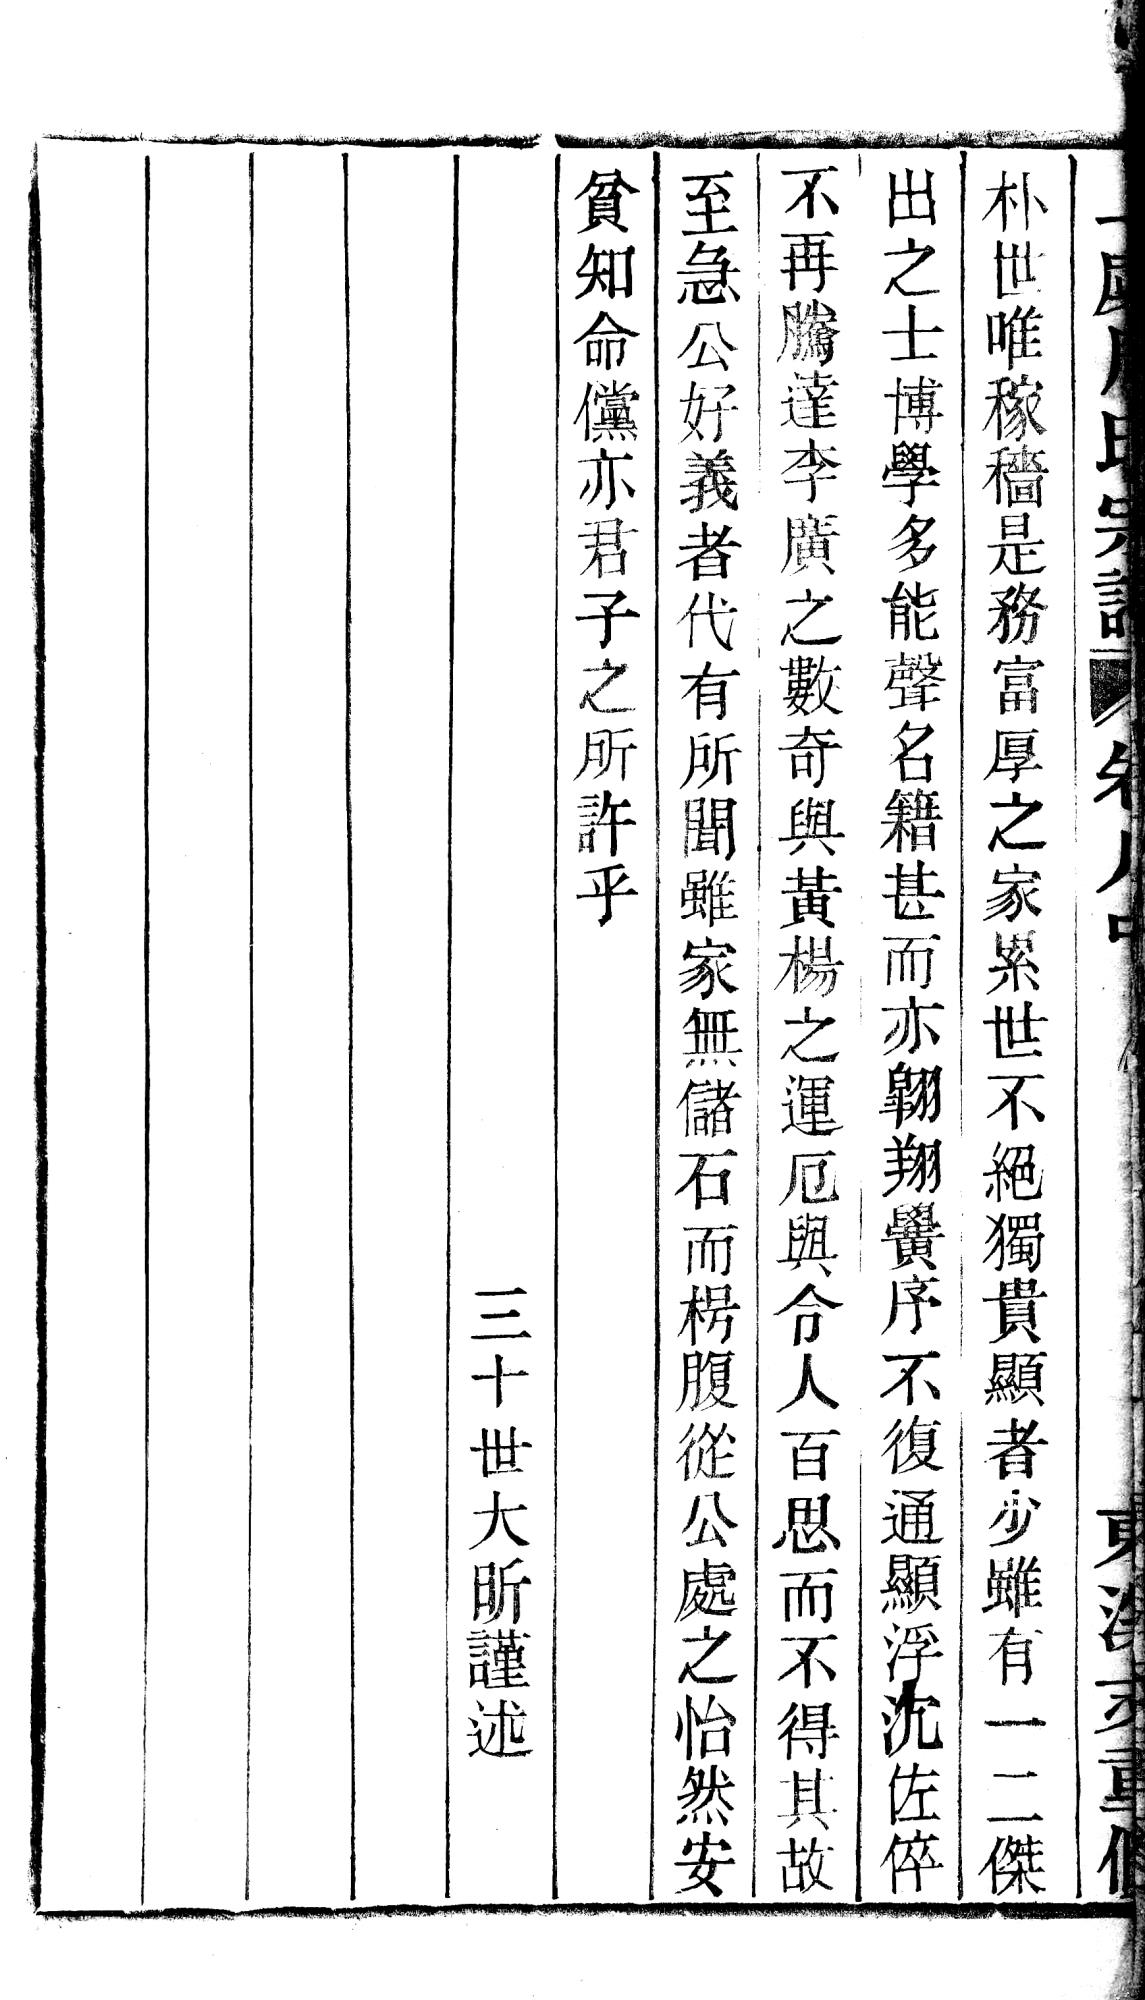 朴世唯稼穡是務富厚之家累世不絕獨貴顯者少雖有一二傑
出之士博學多能聲名籍甚而亦翺翔黌序不復通顯浮沉佐倅
不再騰達李廣之數奇與黃楊之運厄與令人百思而不得其故
至急公好義者代有所聞雖家無儲石而枵腹從公處之怡然安
貧知命儻亦君子之所許乎
三十世大昕謹述